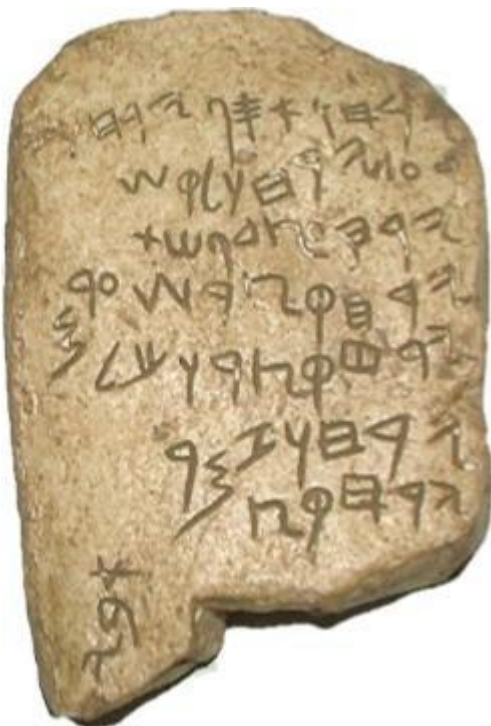 𐤉𐤓𐤇𐤅𐤀𐤎𐤐 𐤉𐤓𐤇
𐤉𐤓𐤇𐤅𐤋𐤒𐤔
𐤉𐤓𐤇𐤏𐤑𐤃𐤐𐤔𐤕
𐤉𐤓𐤇𐤒𐤑𐤓𐤔𐤏𐤓𐤌
𐤉𐤓𐤇𐤒𐤑𐤓𐤅𐤊𐤋
𐤉𐤓𐤇𐤅𐤆𐤌𐤓
𐤉𐤓𐤇𐤒𐤑
𐤀𐤁𐤉